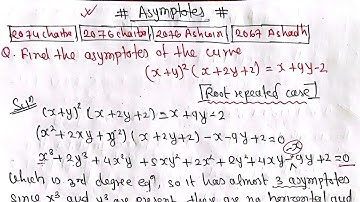 # Asymptotes #
2074 chaitra 2076 chaitra 2076 Ashwin 2067 Ashadh
Q. Find the asymptotes of the curve
(x+y)² (x+2y+2) = x+9y-2
[Root repeated case]
Solⁿ (x+y)² (x+2y+2) = x+9y-2
(x²+2xy+y²) (x+2y+2) -x-9y+2=0
x³+2y³+4x²y+5xy²+2x²+2y²+4xy-x-9y+2=0
Which is 3rd degree eqⁿ, so it has almost 3 asymptotes
Since x³ and y³ are present, there are no horizontal and